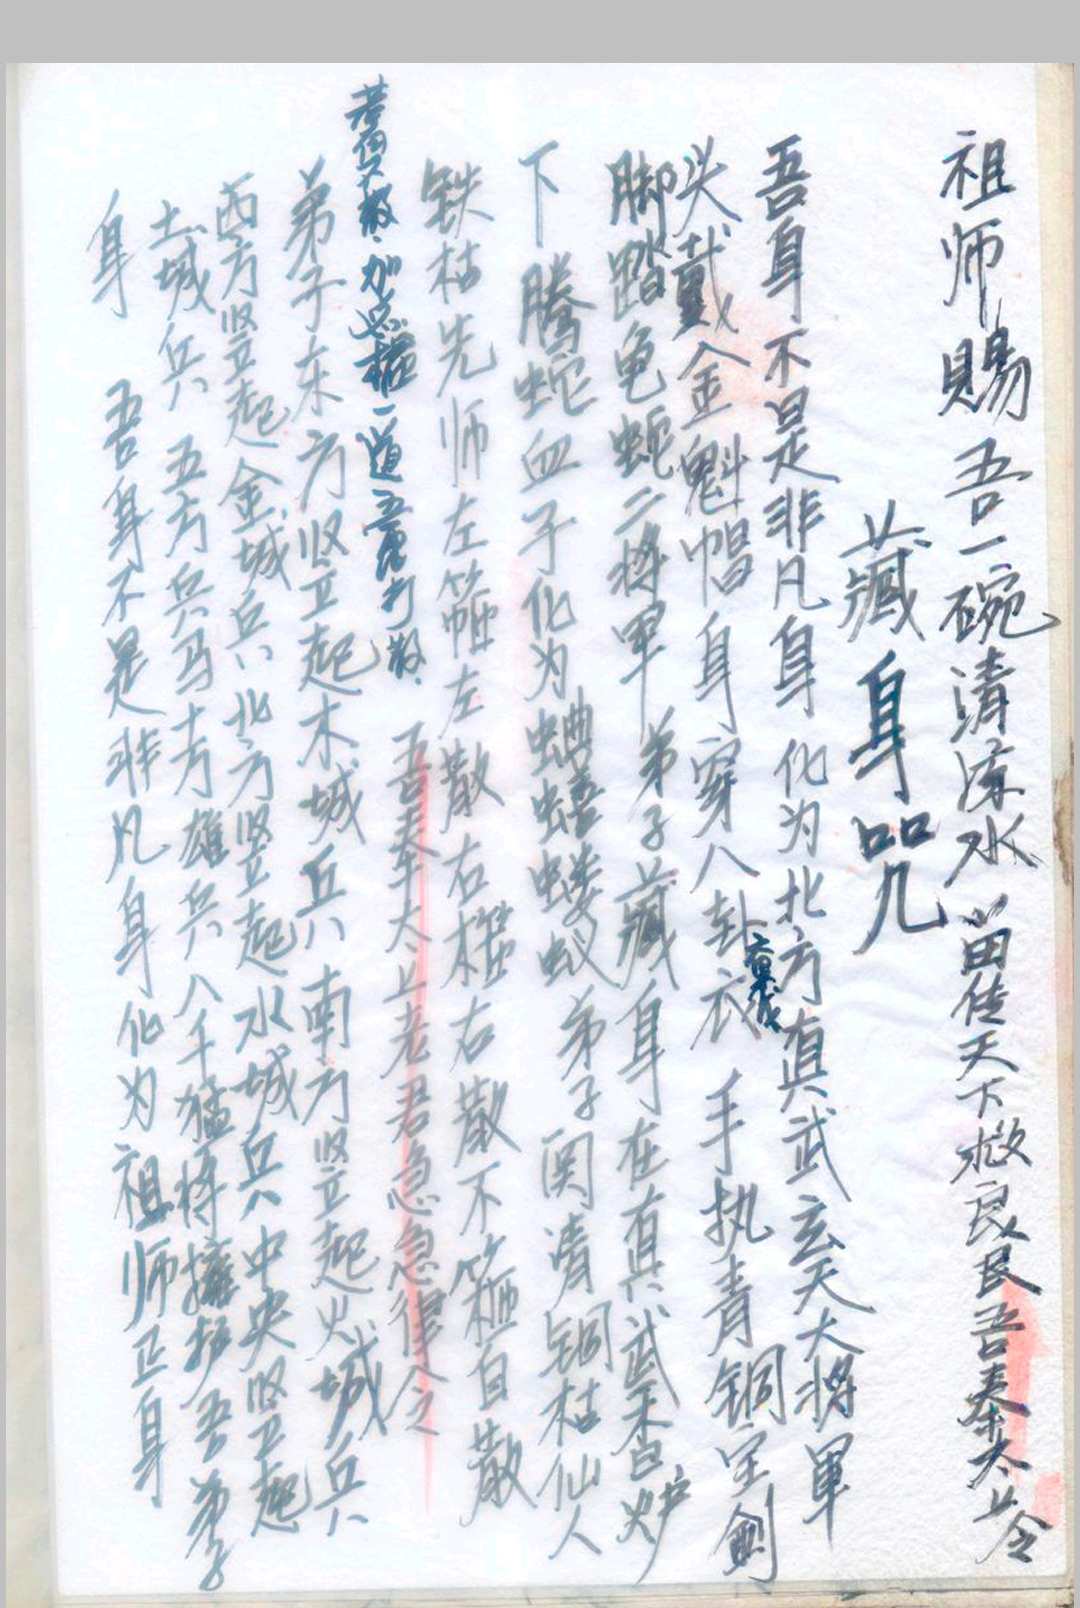 祖师赐吾一碗清凉水 苗传天下救良民吾奉太上令
藏身咒
吾身不是非凡身 化为北方真武玄天大将军
头戴金魁帽身穿八卦衣 手执青铜宝剑
脚踏龟蛇二将军 弟子藏身在真武香炉
下 腾蛇血子化为蛐蟮蝼蚁 弟子 铜枯仙人
铁枯先师左箍左散右 右散不箍自散
吾奉太上老君急急律令
一道
打散
弟子东方竖立起木城兵 南方竖立起火城兵
西方竖立起金城兵 北方竖立起水城兵 中央竖立起
土城兵 五方兵马 千万雄兵 八千猛将拥护吾弟子
身 吾身不是非凡身 化为祖师正身